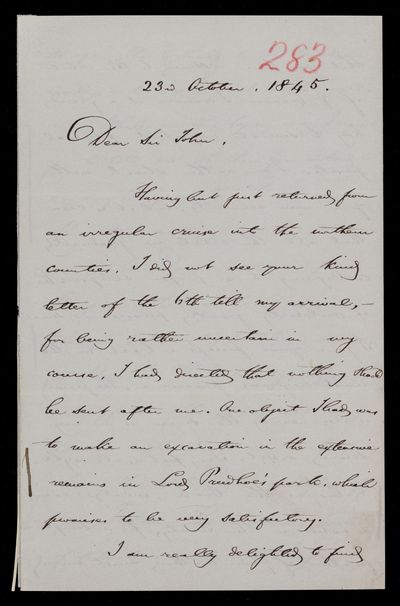 283
23rd October, 1845.
Dear Sir John,
Having but just returned from
an irregular cruise into the northern
counties, I did not see your kind
letter of the 6th till my arrival, –
for being rather uncertain in my
course, I had directed that nothing should
be sent after me. One object I had was
to make an excavation in the extensive
remains in Lord Prudhoe's park, which
promises to be very satisfactory.
I am really delighted to find